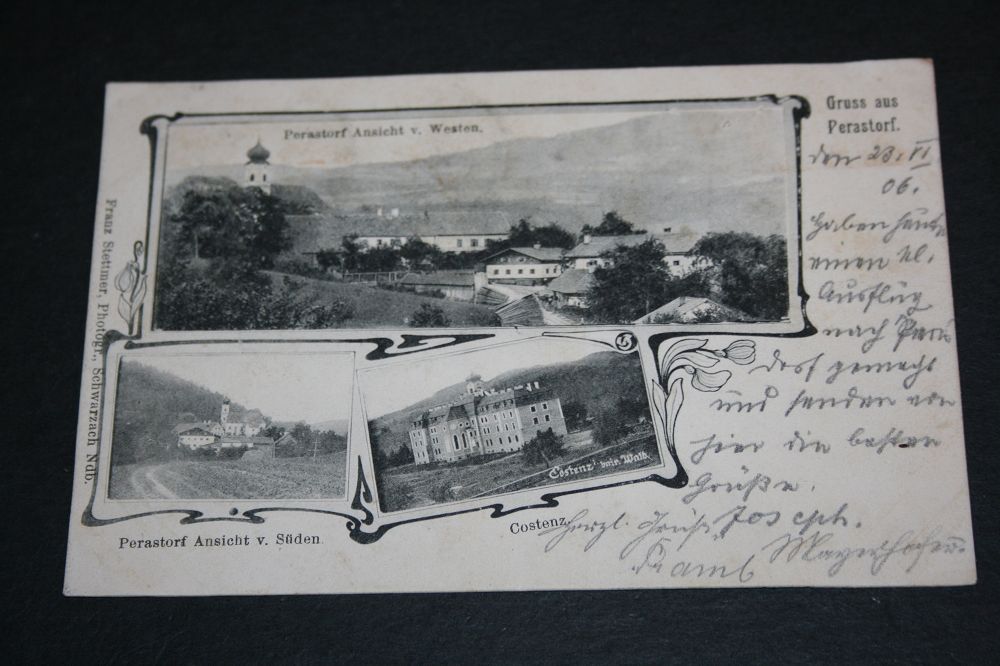 Gruss aus
Perastorf.
Perastorf Ansicht v. Westen.
Franz Stettmer, Photogr., Schwarzach Ndb.
den 23. VI
06.
haben heute
einen kl.
Ausflug
nach Peras
dorf gemacht
und senden von
hier die besten
Grüße.
Costenz bair. Wald.
Costenz.
Perastorf Ansicht v. Süden.
herzl. Gruß Joseph.
Mayerhofer